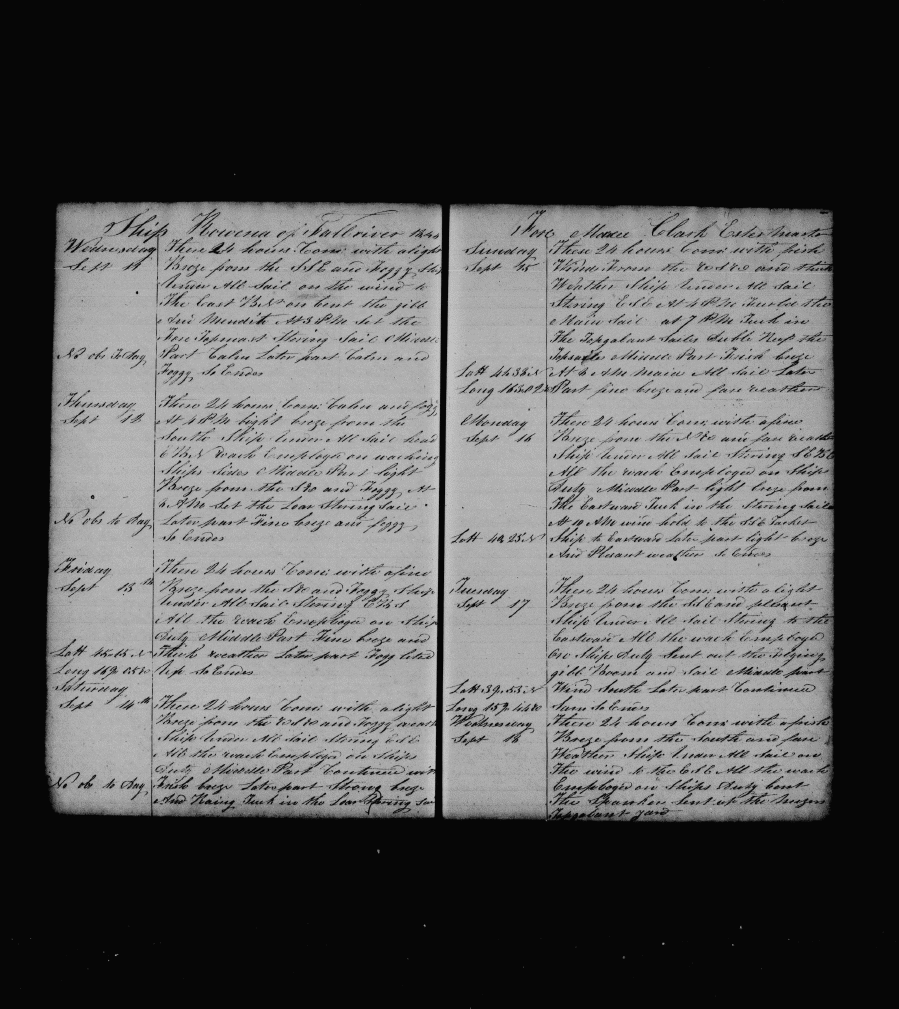 Ship Rowena of Fallriver 1844
Wednesday
Sept 11
These 24 hours Com: with a light
Breze from the S S E and Foggy Ship
Under All Sail on the wind to
The East B N on bent the gibb
And Mendith At 3 P M Set the
Fore Topmast String Sail Middle
Part Calm Later part Calm and
Foggy So Endes
No obs To day
Thursday
Sept 12
These 24 hours Com: Calm and fogg
At 4 P M light breze from the
South Ship Under All Sail
E B N wach Employed on waching
Ships Sides Middle Part light
Breze from the and Foggy At
A M Set the Loar String Sail
Later part Fine breze and foggy
So Endes
No obs to day
Friday
Sept 13th
These 24 hours Com: with a fine
Breze from the and Foggy Ship
Under All Sail String E B S
All the wach Employed on Ship
Duty Middle Part Fine breze and
Thick weather Later part Fogg lited
Up So Endes
Latt 45.15 N
Long 169.05
Saturday
Sept 14th
These 24 hours Com: with a light
Breze from the and Foggy weath
Ship Under All Sail String
All the wach Employed on Ships
Duty Middle Part Continued with
Fresh breze Later part Strong breze
And Rainy Tuck in the Loar String Sail
No obs to day
From Clark
Sunday
Sept 15
These 24 hours Com: with fresh
Winds From the and thick
Weather Ship Under All Sail
String E S E At 4 P M Furled the
Main Sail at 7 P M Tuck in
The Topgalant Sailes Duble Reeft the
Topsailes Middle Part Fresh breze
At 6 A M Made All Sail Later
Part fine breze and fare weather
Latt 44.38 N
Long 163.02
Monday
Sept 16
These 24 hours Com: with a fine
Breze from the and fare weather
Ship Under All Sail String S E B E
All the wach Employed on Ships
Duty Middle Part light breze from
The Eastward Tuck in the String Sailes
At 10 A M wind hold to the S S E Tacket
Ship to Eastward Later part light breze
And Plesant weather So Endes
Latt 42.25 N
Tuesday
Sept 17
These 24 hours Com: with a light
Breze from the S S E and plesant
Ship Under All Sail String to the
Eastward All the wach Employed
On Ships Duty Sent out the
gibb Boom and Sail Middle part
Wind South Later part Continued
Same So Endes
Latt 39.53 N
Long 159.44
Wednesday
Sept 18
These 24 hours Com: with a fresh
Breze from the South and fare
Weather Ship Under All Sail on
The wind to the E S E All the wach
Employed on Ships Duty bent
The Spanker Sent up the
Topgalant yard